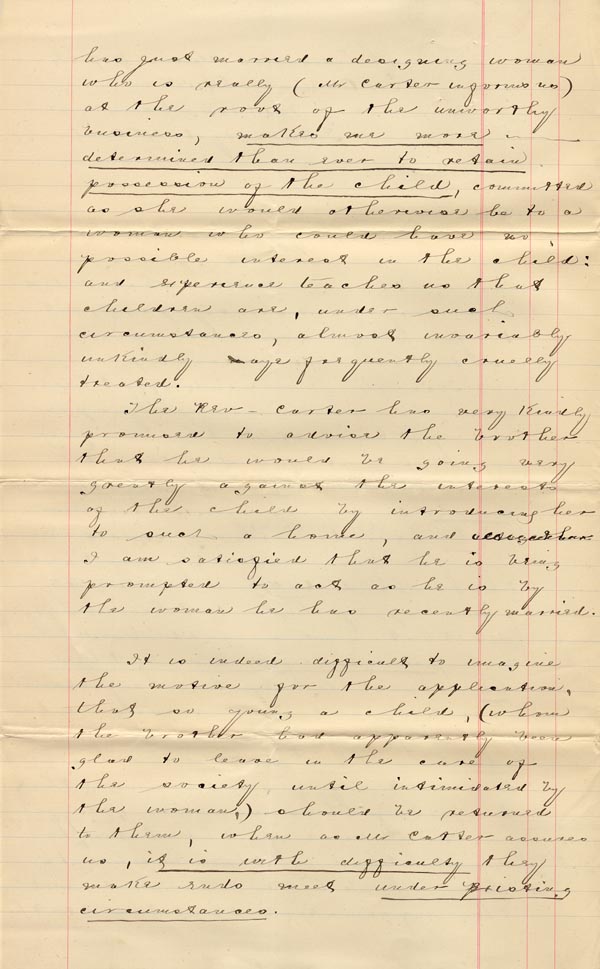 has just married a designing woman
who is really (Mr Carter informs us)
at the root of the unworthy
business, makes me more
determined than ever to retain
possession of the child, committed
as she would otherwise be to a
woman who could have no
possible interest in the child:
and experience teaches us that
children are, under such
circumstances, almost invariably
unkindly aye frequently cruelly
treated.
The Rev - Carter has very kindly
promised to advise the brother
that he would be going very
greatly against the interests
of the child by introducing her
to such a home, and
I am satisfied that he is being
prompted to act as he is by
the woman he has recently married.
It is indeed difficult to imagine
the motive for the application,
that so young a child, (whom
the brother had apparently been
glad to leave in the care of
the society until intimidated by
the woman,) should be returned
to them, when as Mr Carter assures
us, it is with difficulty they
make ends meet under existing
circumstances.